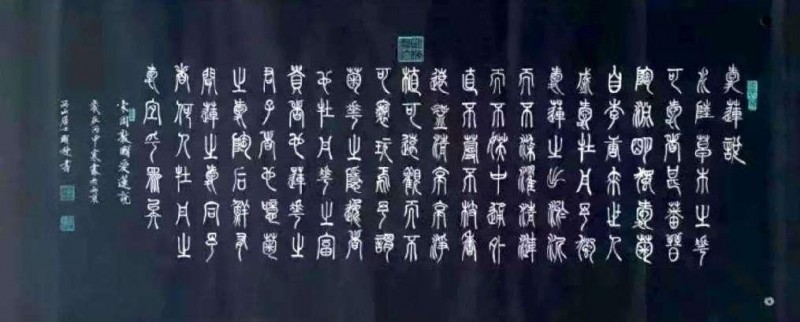 愛蓮說
水陸草木之華
可愛者甚蕃晉
陶淵明獨愛菊
自李唐來世人
盛愛牡丹予獨
愛蓮之出淤泥
而不染濯清漣
而不妖中通外
直不蔓不枝香
遠益清亭亭淨
植可遠觀而不
可褻玩焉予謂
菊華之隱逸者
也牡丹華之富
貴者也蓮華之
君子者也噫菊
之愛陶后鮮有
聞蓮之愛同予
者何人牡丹之
愛宜乎眾矣
宋周敦頤愛蓮說
歲在丙申